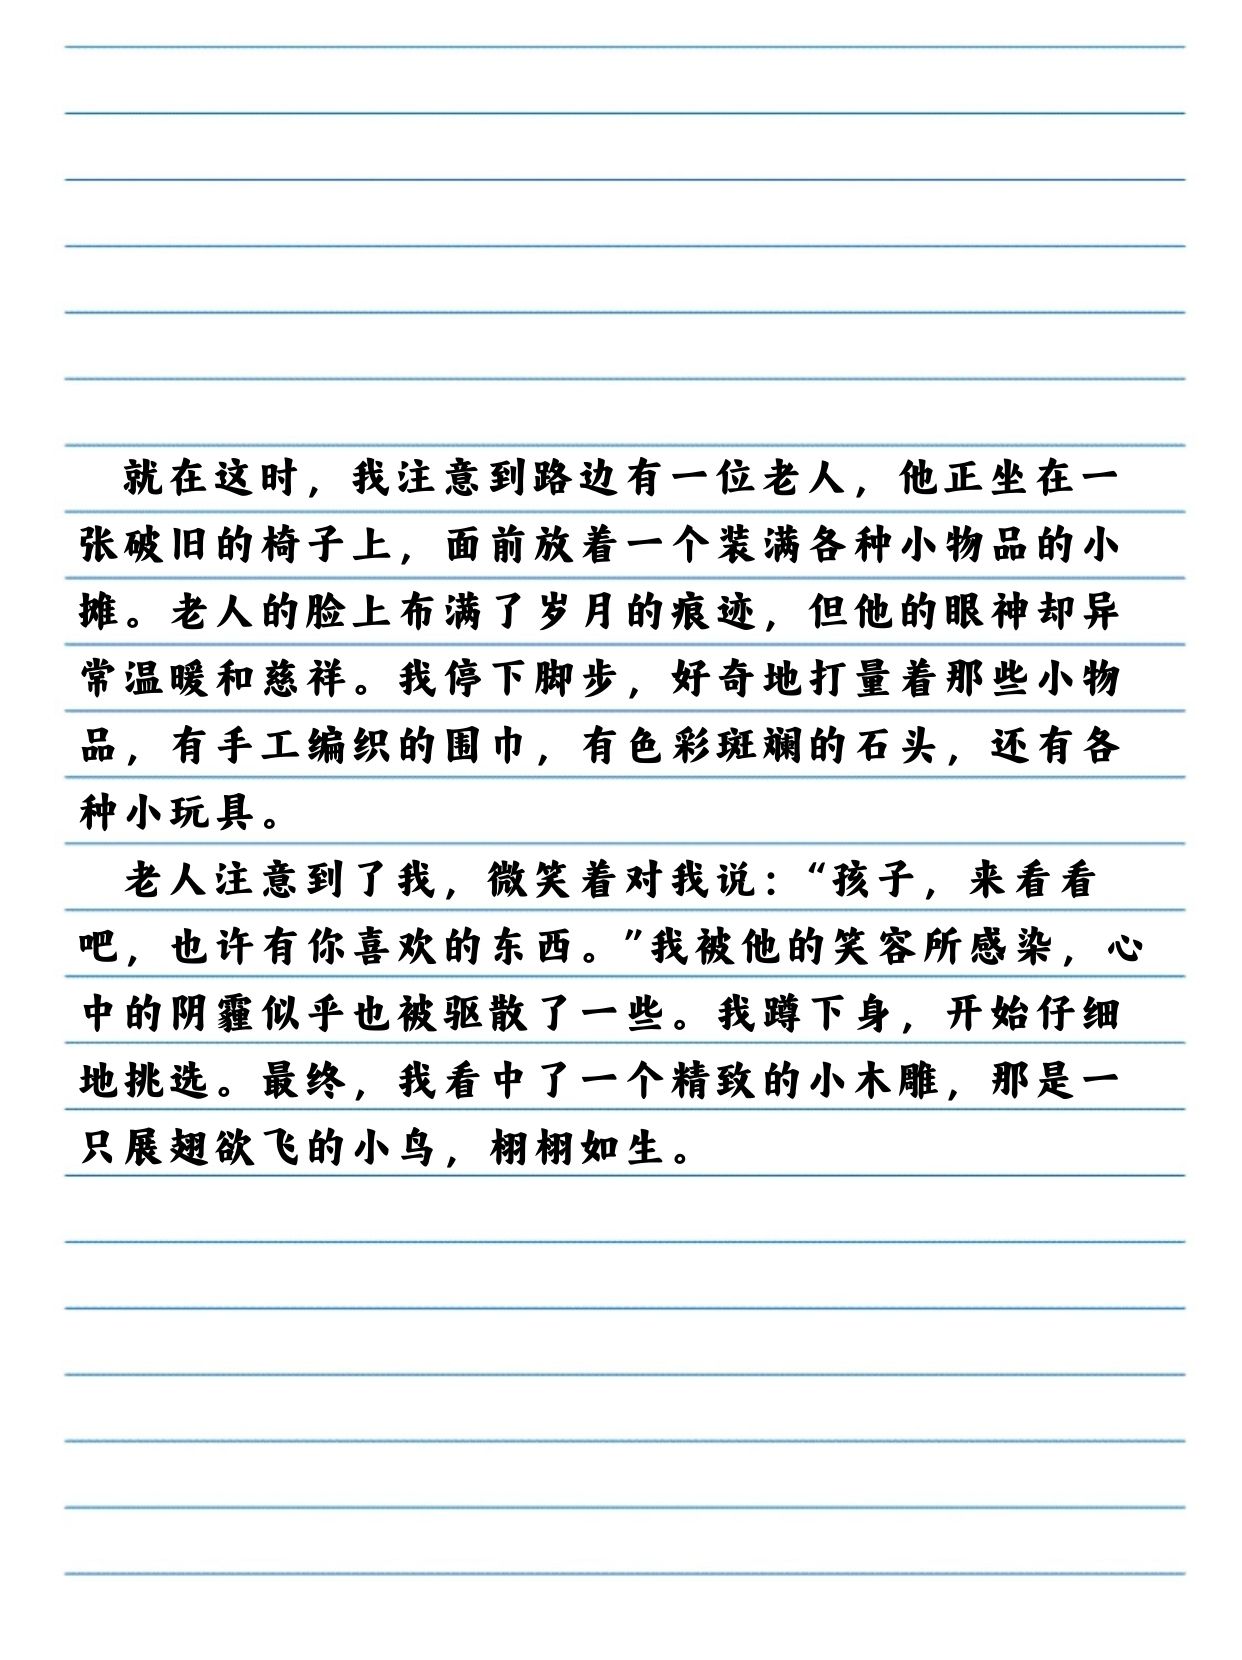 就在这时，我注意到路边有一位老人，他正坐在一
张破旧的椅子上，面前放着一个装满各种小物品的小
摊。老人的脸上布满了岁月的痕迹，但他的眼神却异
常温暖和慈祥。我停下脚步，好奇地打量着那些小物
品，有手工编织的围巾，有色彩斑斓的石头，还有各
种小玩具。
老人注意到了我，微笑着对我说：“孩子，来看看
吧，也许有你喜欢的东西。”我被他的笑容所感染，心
中的阴霾似乎也被驱散了一些。我蹲下身，开始仔细
地挑选。最终，我看中了一个精致的小木雕，那是一
只展翅欲飞的小鸟，栩栩如生。